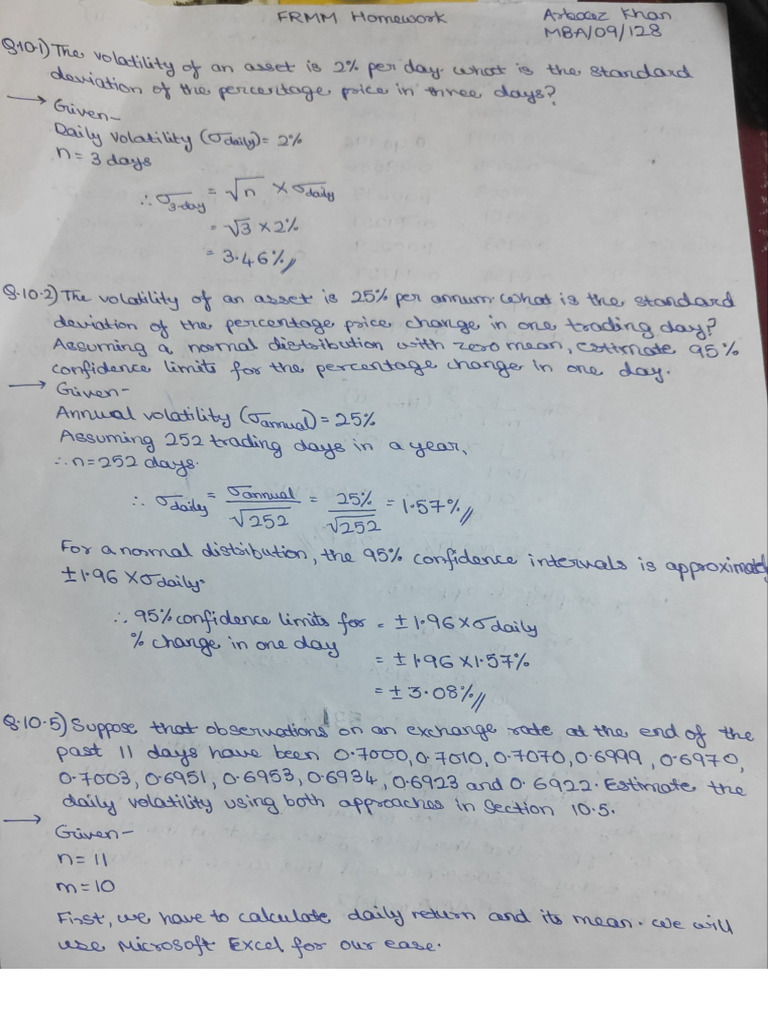 FRMM Homework
Arbaaz Khan
MBA/09/128
Q.10.1) The volatility of an asset is 2% per day. what is the standard
deviation of the percentage price in three days?
→ Given-
Daily volatility (σdaily) = 2%
n = 3 days
∴ σ3-day = √n × σdaily
= √3 × 2%
= 3.46%//
Q.10.2) The volatility of an asset is 25% per annum. what is the standard
deviation of the percentage price change in one trading day?
Assuming a normal distribution with zero mean, estimate 95%
confidence limits for the percentage change in one day.
→ Given-
Annual volatility (σannual) = 25%
Assuming 252 trading days in a year,
∴ n = 252 days.
∴ σdaily = σannual/√252 = 25%/√252 = 1.57%//
For a normal distribution, the 95% confidence intervals is approximately
±1.96 × σdaily.
∴ 95% confidence limits for = ±1.96 × σdaily
% change in one day
= ±1.96 × 1.57%
= ±3.08%//
Q.10.5) Suppose that observations on an exchange rate at the end of the
past 11 days have been 0.7000, 0.7010, 0.7070, 0.6999, 0.6970,
0.7003, 0.6951, 0.6953, 0.6934, 0.6923 and 0.6922. Estimate the
daily volatility using both approaches in Section 10.5.
→ Given-
n = 11
m = 10
First, we have to calculate daily return and its mean. we will
use Microsoft Excel for our ease.